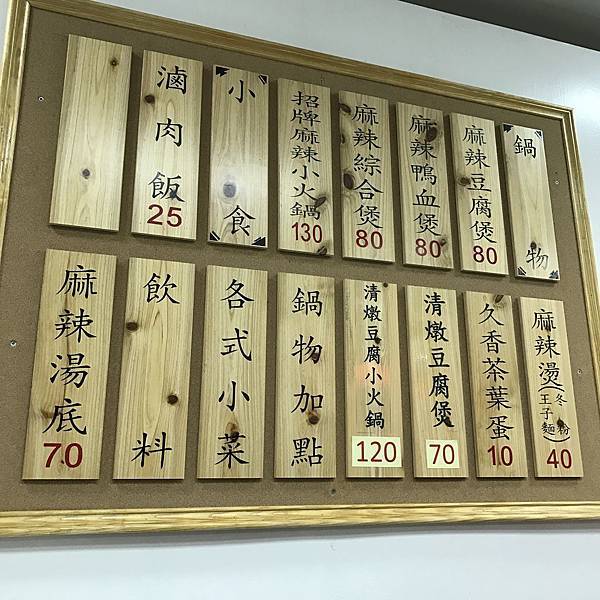 鍋物
麻辣豆腐煲
80
麻辣鴨血煲
80
麻辣綜合煲
80
招牌麻辣小火鍋
130
小食
滷肉飯
25
麻辣燙(冬粉 王子麵)
40
久香茶葉蛋
10
清燉豆腐煲
70
清燉豆腐小火鍋
120
鍋物加點
各式小菜
飲料
麻辣湯底
70